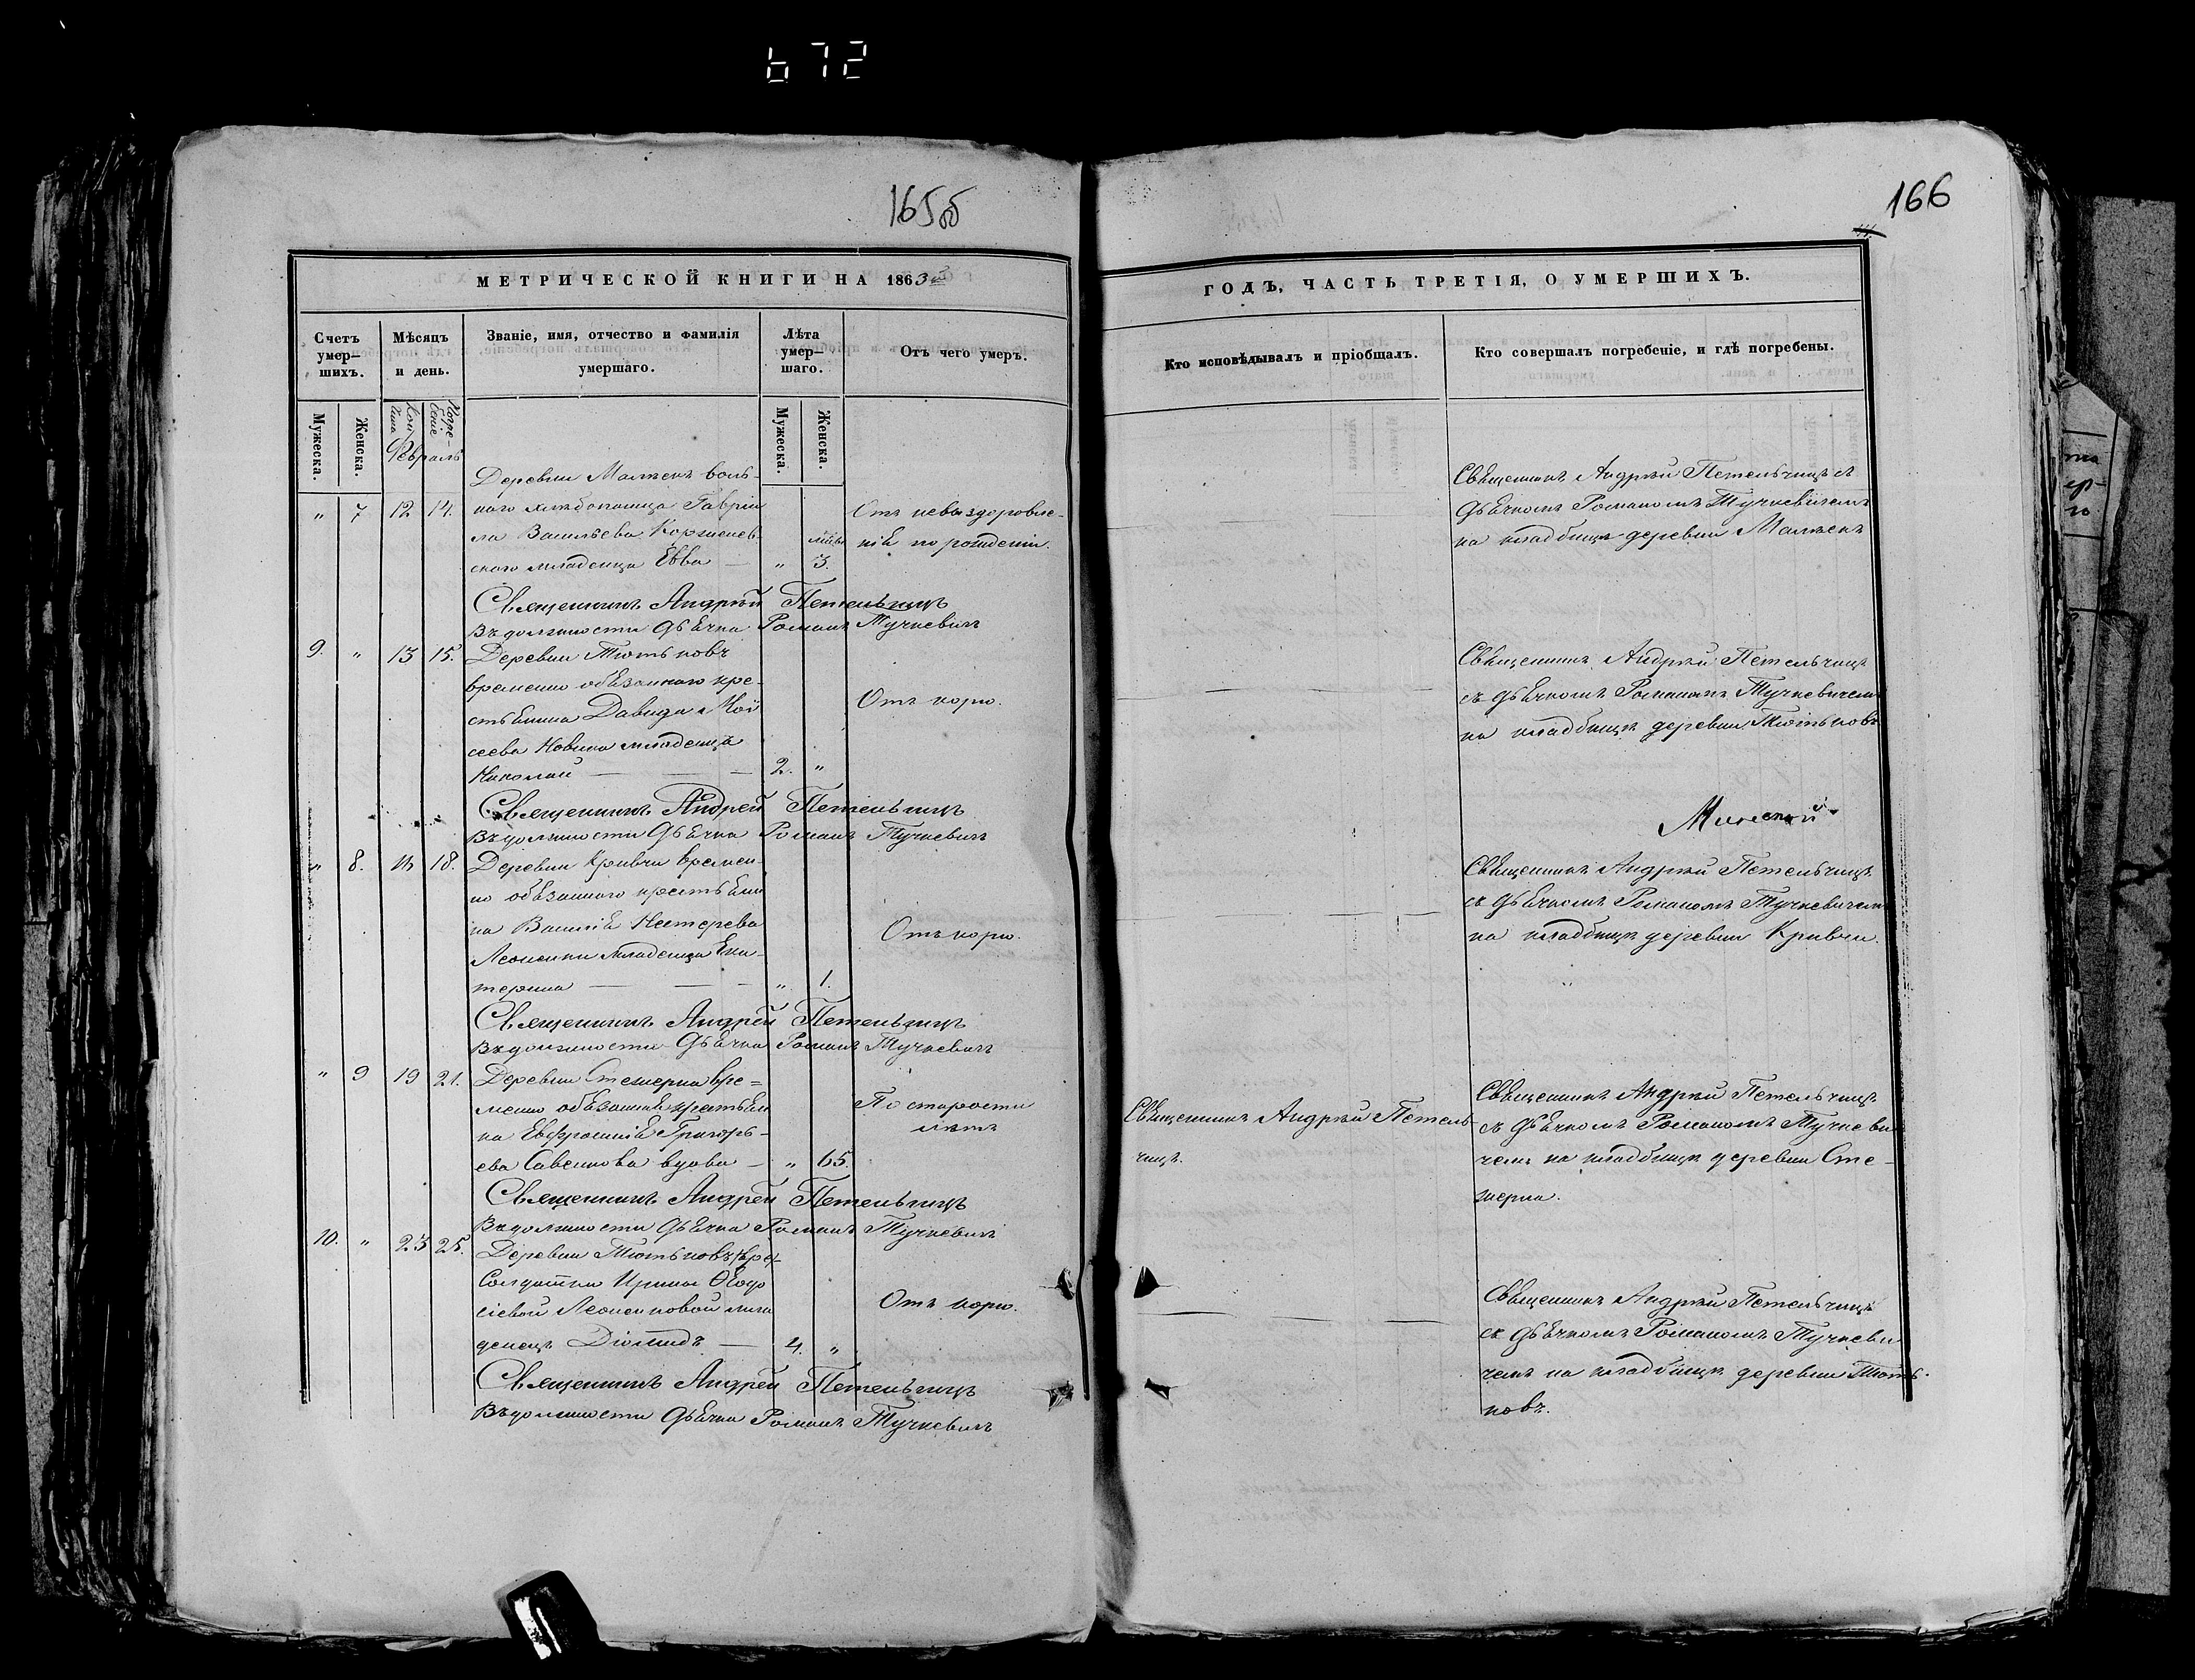 672
165об
166
МЕТРИЧЕСКОЙ КНИГИ НА 1863й
ГОДЪ, ЧАСТЬ ТРЕТІЯ, О УМЕРШИХЪ.
Счетъ умер-шихъ.
Мѣсяцъ и день.
Званіе, имя, отчество и фамилія умершаго.
Лѣта умер-шаго.
Отъ чего умеръ.
Кто исповѣдывалъ и пріобщалъ.
Кто совершалъ погребеніе, и гдѣ погребены.
Мужеска.
Женска.
Февраль
Мужеска.
Женска.
„ 7 12 14.
Деревни
воль-
наго хлѣбопашца Гаврiи-
ла Васильева
скаго младенца Евва — „ 3.
Отъ невыздоровле-
нія по рожденіи.
Священникъ Андрей Петельчицъ съ
дьячкомъ Романомъ Тучкевичемъ
на кладбищѣ деревни
Священникъ Андрей Петельчицъ
Въ должности дьячка Романъ Тучкевичъ
9. „ 13 15.
Деревни Тютьковъ
временно обязаннаго кре-
стьянина Давида Мои
сеева Новика младенецъ
Николай — — 2. „
Отъ кори.
Священникъ Андрей Петельчицъ
съ дьячкомъ Романомъ Тучкевичемъ
на кладбищѣ деревни Тютьковъ
Священникъ Андрей Петельчицъ
Въ должности дьячка Романъ Тучкевичъ
Минской
„ 8. 16 18.
Деревни Кривчи времен-
но обязаннаго крестьяни
на Василія Нестерева
Леоненки младенца Ека-
терина — — „ 1.
Отъ кори.
Священникъ Андрей Петельчицъ
съ дьячкомъ Романомъ Тучкевичемъ
на кладбищѣ деревни Кривчи.
Священникъ Андрей Петельчицъ
Въ должности дьячка Романъ Тучкевичъ
„ 9 19 21.
Деревни Стежерна вре=
менно обязанная крестьян
ка Евфросинія Григорь-
ева Савенкова вдова — „ 65.
По старости
лѣтъ
Священникъ Андрей Петель-
чицъ.
Священникъ Андрей Петельчицъ
съ дьячкомъ Романомъ Тучкеви
чемъ на кладбищѣ деревни Сте-
жерна.
Священникъ Андрей Петельчицъ
Въ должности дьячка Романъ Тучкевичъ
10. „ 23 25.
Деревни Тютьковъ /вре/
Солдатки Ирины Ѳеодо
сіевой Леоненковой мла
денецъ Діомидъ — 4. „
Отъ кори.
Священникъ Андрей Петельчицъ
съ дьячкомъ Романомъ Тучкеви
чемъ на кладбищѣ деревни Тють-
ковъ.
Священникъ Андрей Петельчицъ
Въ должности дьячка Романъ Тучкевичъ